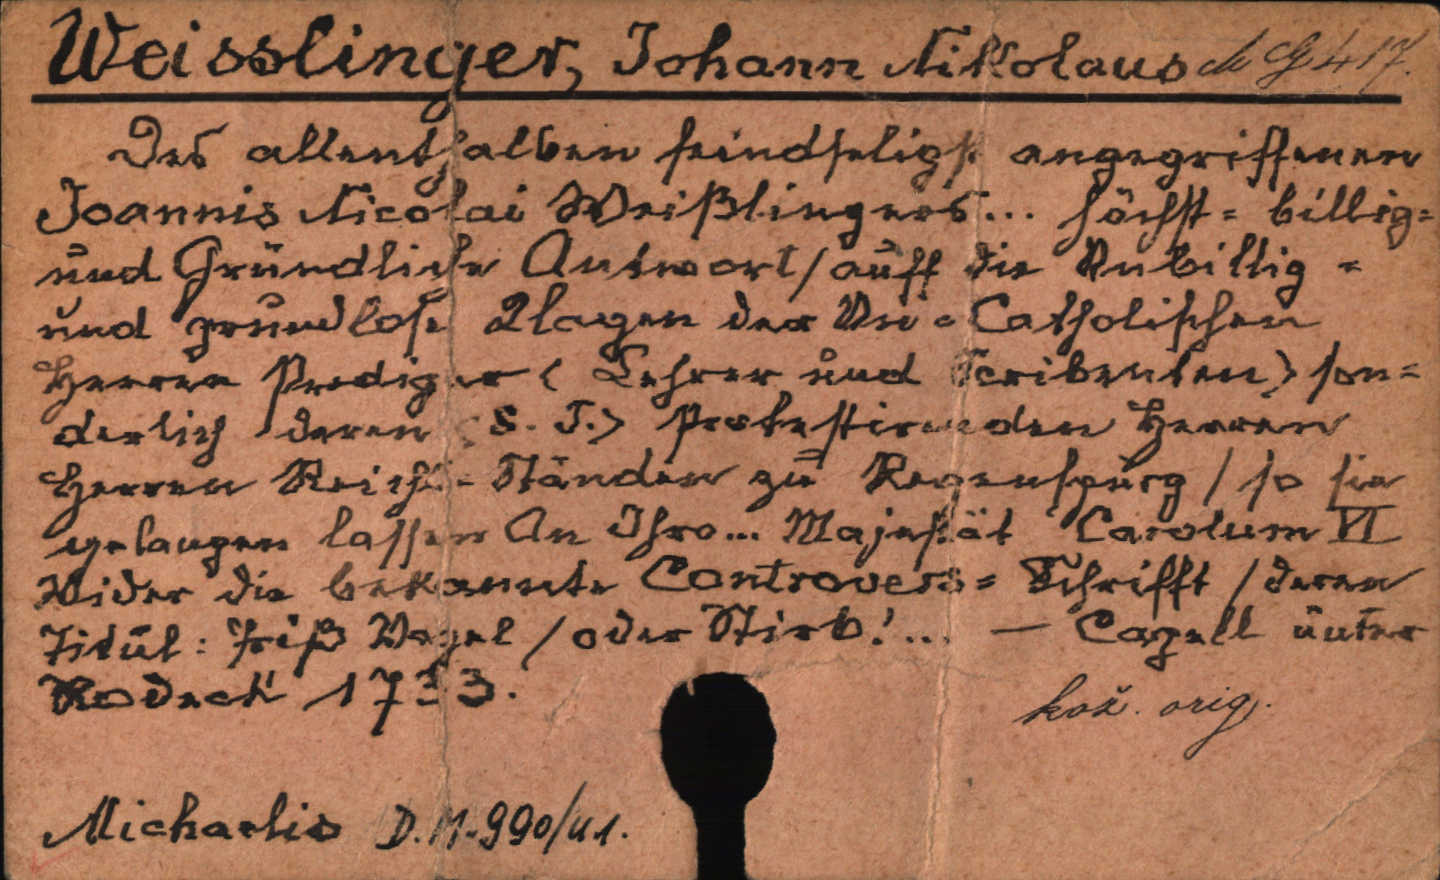 Weisslinger, Johann Nikolaus M G 417.
Des allenthalben feindseligst angegriffenen
Joannis Nicolai Weißlingers... höchst= billig=
und Gründliche Antwort / auff die Unbillig =
und grundlose Klagen der Un = Catholischen
Herren Prediger ( Lehrer und Scribenten ) son=
derlich deren ( S. T. ) Protestirenden Herren
Herren Reichs-Ständen zu Regenspurg / so sie
gelangen lassen An Ihro... Majestät Carolum VI
Wider die bekannte Controvers= Schrifft / deren
Titul: Friß Vogel / oder Stirb! ... — Capell unter
Rodeck 1733.
kož. orig.
Michaelis D. M. 990/u1.